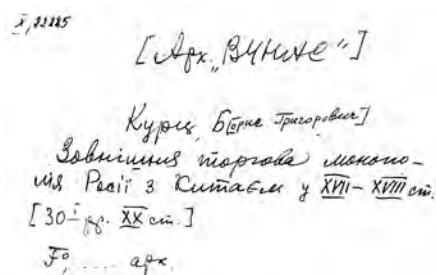 X, 22225
[Арх. „ВУНАС"]
Курц, Б[орис Григорович]
Зовнішня торгова монопо-
лія Росії з Китаєм у XVII – XVIII ст.
[30-і рр. XX ст.]
F°, .... арк.